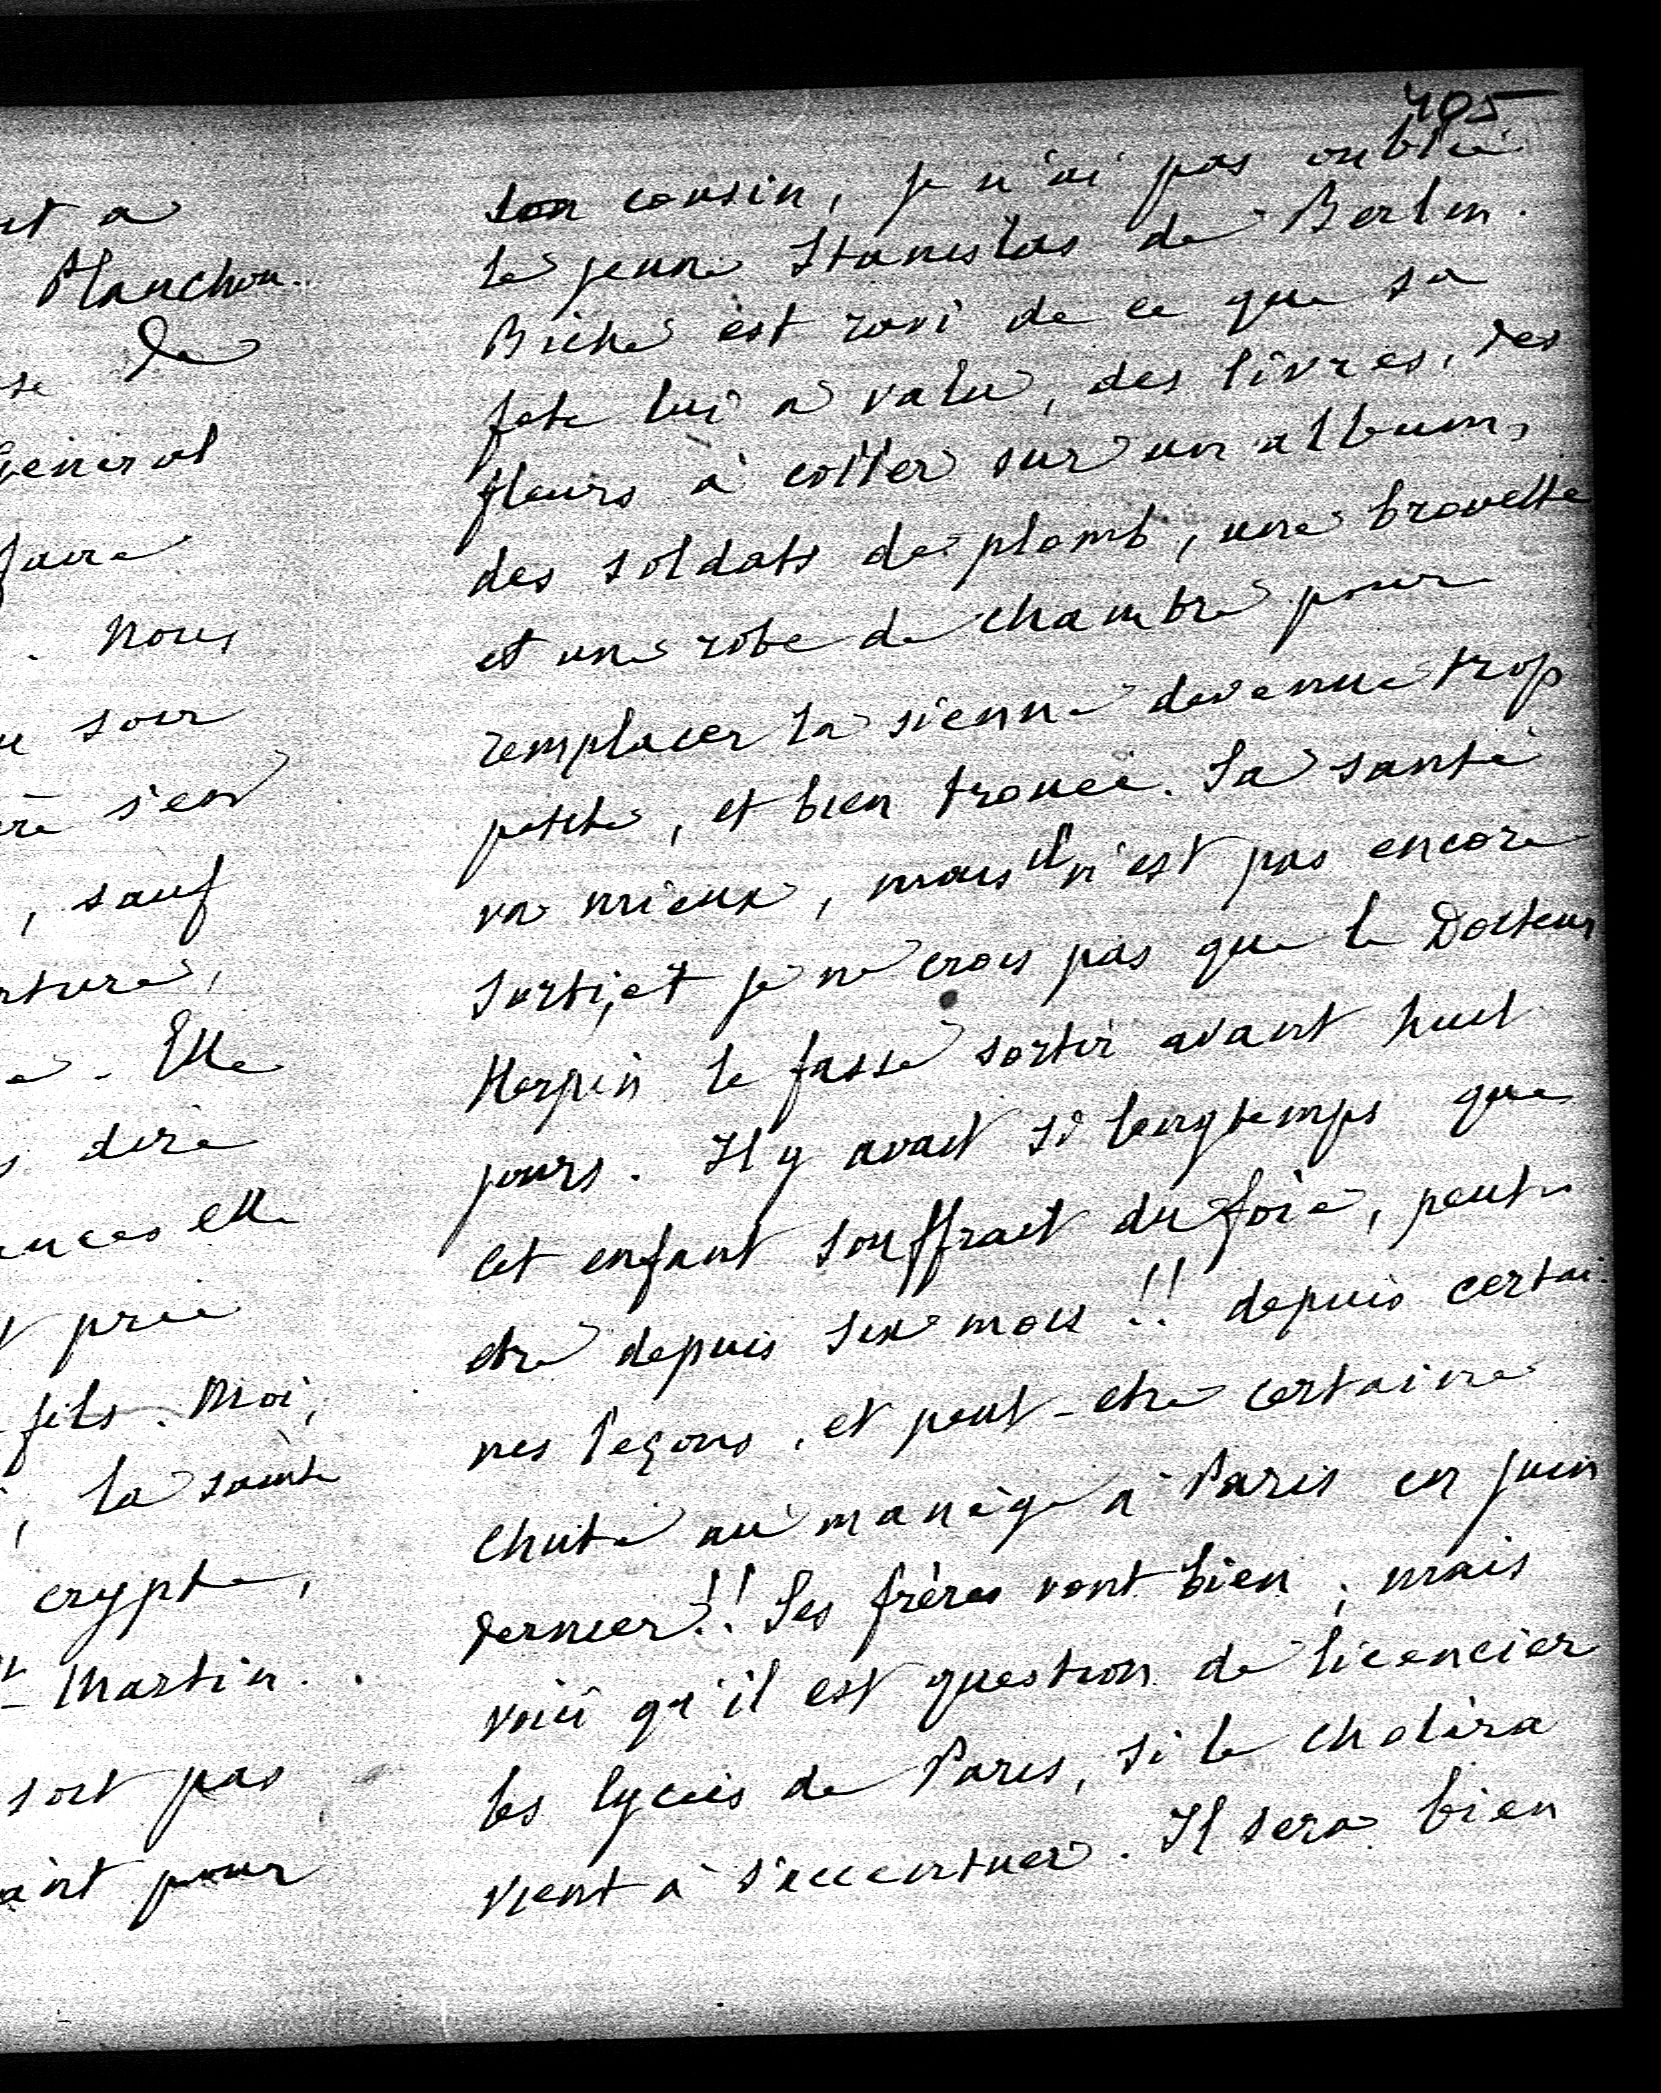 405
et a
Planchon.
se De
Général
faire
. Nous
soir
s'en
, sauf
. Elle
dire
elle
prié
fils. Moi,
, la sainte
crypte,
St Martin.
sort pas
pour
son cousin, je n'ai pas oublié
le jeune Stanislas de Berlin.
Biche est ravi de ce que sa
fete lui a valu, des livres, des
fleurs à coller sur un album,
des soldats de plomb, une brouette
et une robe de chambre pour
remplacer la sienne devenue trop
petite, et bien trouée. Sa santé
va mieux, mais il n'est pas encore
sorti, et je ne crois pas que le Docteur
Herpin le fasse sortir avant huit
jours. Il y avait si longtemps que
cet enfant souffrait du foie, peut
etre depuis six mois!! depuis certai-
nes leçons, et peut-etre certaine
chute au manège à Paris en juin
dernier!! Ses frères vont bien, mais
voici qu'il est question de licencier
les lycées de Paris, si le choléra
vient à s'accentuer. Il sera bien